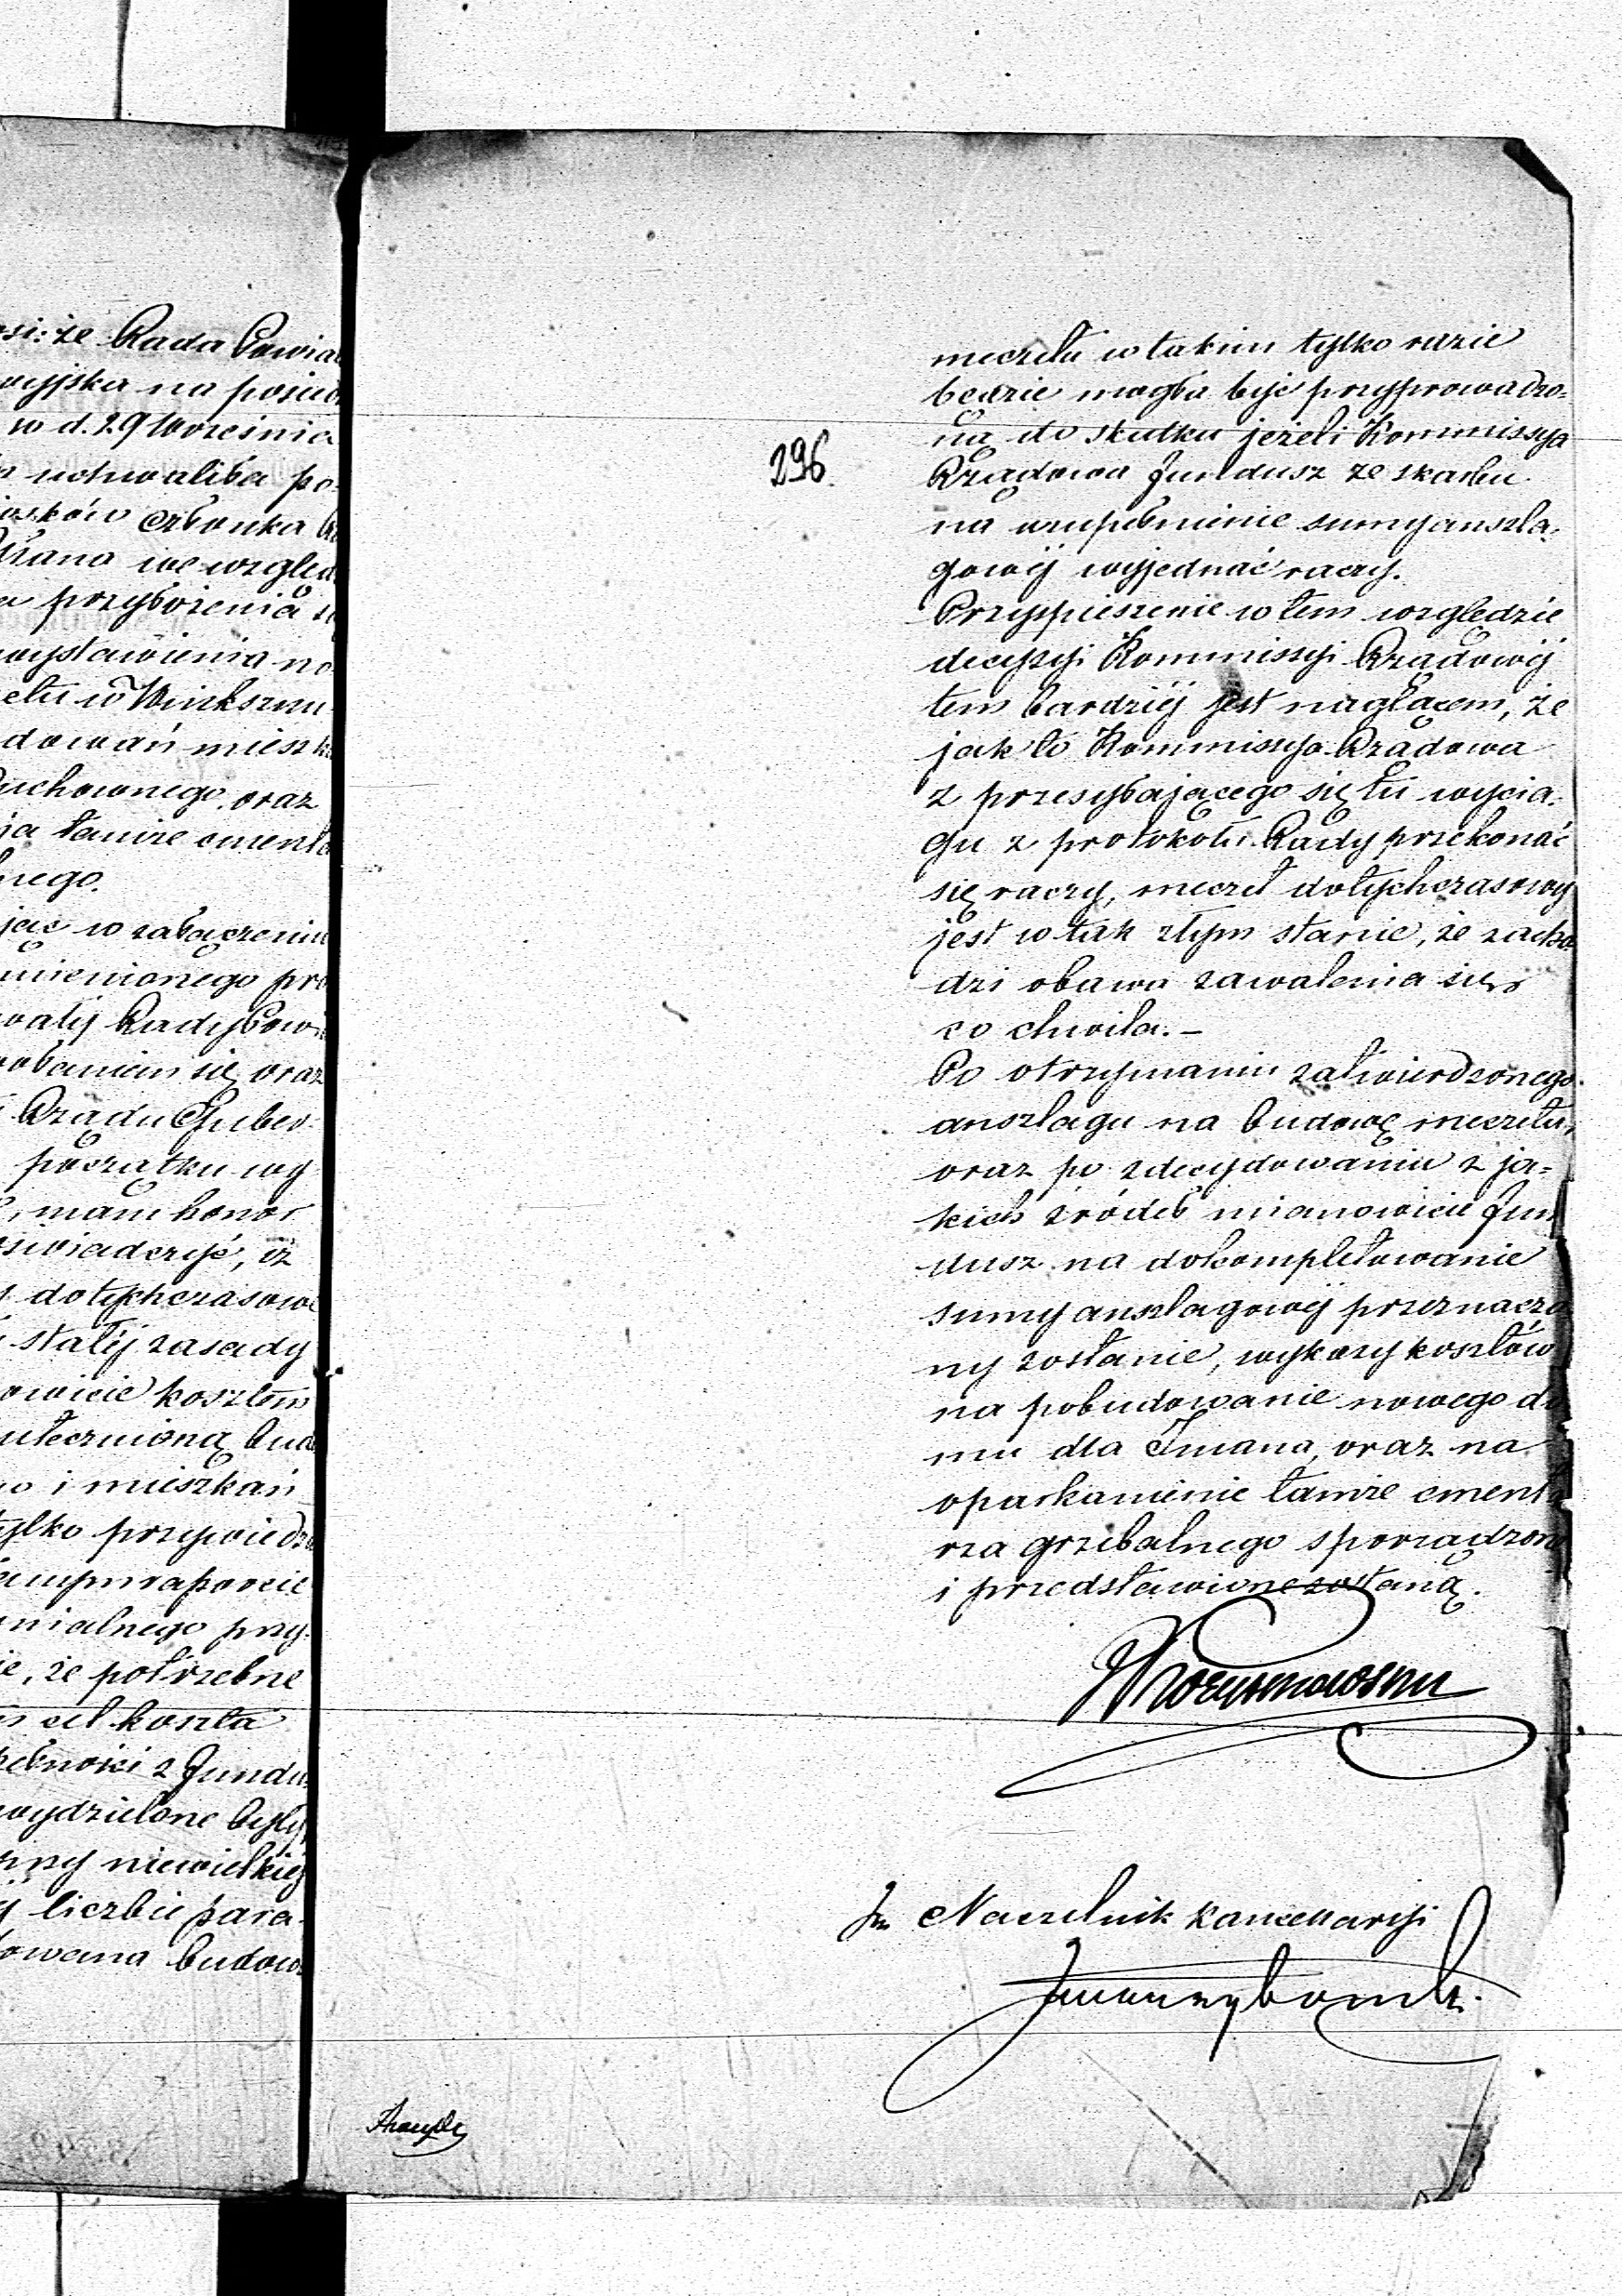 si: że Rada Powia
wyjska na posied
w d. 29 Września
uchwaliła po-
zków członka
Imana we wzglę
a przyłożenia
wystawienia no
etu w Winksznu
dowań miesz
Duchownego, oraz
ja tamże cmenta
nego.
jąc w załączeniu
mienionego pro
wały Rady Powi
ołaniem się oraz
Rządu Guber-
początku wy
mam honor
oświadczyć, iż
dotychczasowe
stałej zasady
owicie kosztem
utecznioną bud
o i mieszkań
tylko przywiedz
raporcie
nialnego przy-
je, że potrzebne
cel koszta
pełności z fundu
wydzielone były
przy niewielkiej
j liczbie para-
owana budow
296.
meczetu w takim tylko razie
będzie mogła być przyprowadzo-
ną do skutku jeżeli Kommissya
Rządowa fundusz ze skarbu
na uzupełnienie sumy anszla-
gowéj wyjednać raczy.
Przyspieszenie w tem względzie
decyzyi Kommissyi Rządowéj
tem bardziéj jest naglącem, że
jak to Kommissya Rządowa
z przesyłającego się tu wycią-
gu z protokółu Rady przekonać
się raczy, meczet dotychczasowy
jest w tak złym stanie, że zacho
dzi obawa zawalenia się
co chwila. –
Po otrzymaniu zatwierdzonego
anszlagu na budowę meczetu,
oraz po zdecydowaniu z ja-
kich źródeł mianowicie fun
dusz na dokompletowanie
sumy anszlagowéj przeznaczo
ny zostanie, wykazy kosztów
na pobudowanie nowego do
mu dla Imana, oraz na
oparkanienie tamże cmenta
rza grzebalnego sporządzone
i przedstawione zostaną.
Naczelnik Kancellaryi